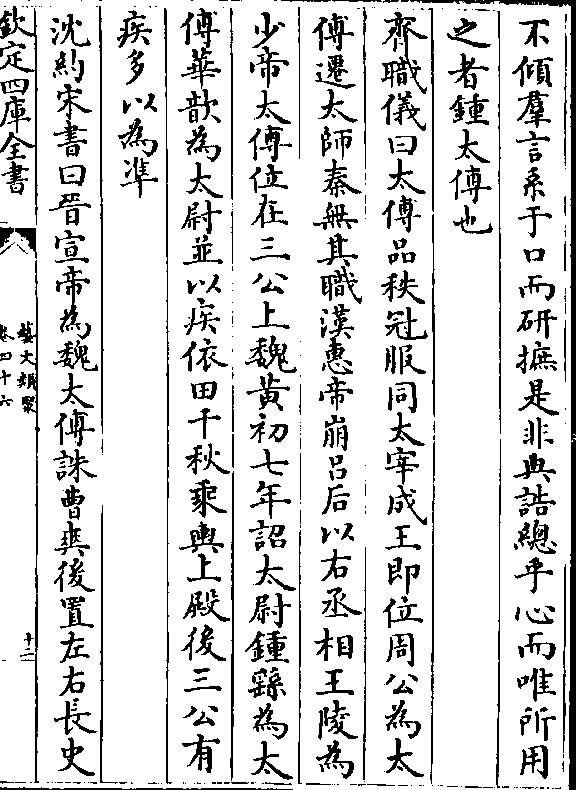 不傾羣言系于口而研摭是非典誥總乎心而唯所用
之者鍾太傅也
齊職儀曰太傅品秩冠服同太宰成王即位周公為太
傅遷太師秦無其職漢惠帝崩吕后以右丞相王陵為
少帝太傅位在三公上魏黄初七年詔太尉鍾繇為太
傅華歆為太尉並以疾依田千秋乘輿上殿後三公有
疾多以為凖
沈約宋書曰晉宣帝為魏太傅誅曹爽後置左右長史
欽定四庫全書
藝文類聚
卷四十六
十二